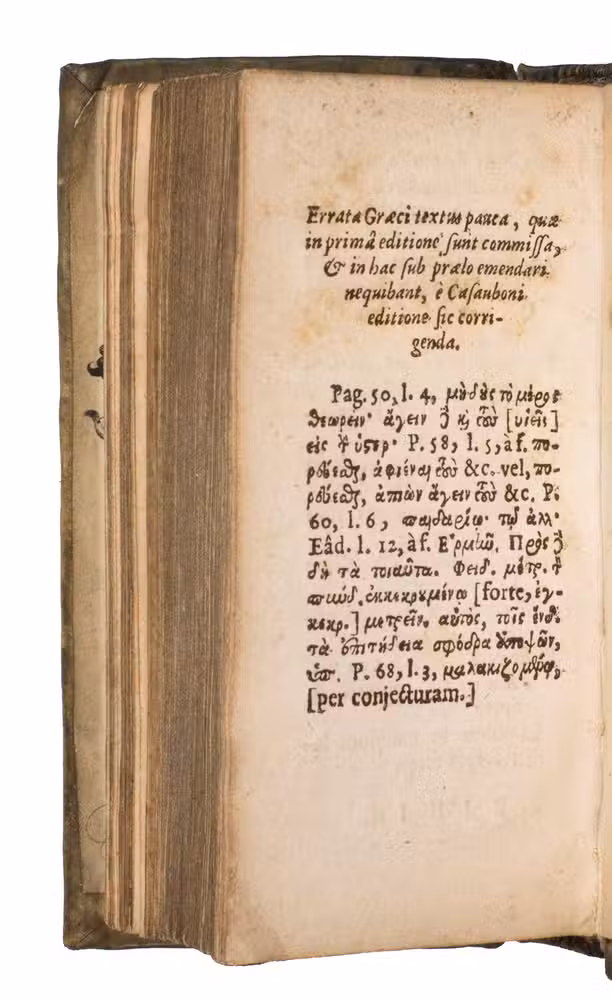 Errata Græci textus pauca, quæ
in primâ editione sunt commissa,
& in hac sub prælo emendari
nequibant, è Casauboni
editione sic corri-
genda.
Pag. 50, l. 4, τὸ μέρος
θεωρεῖν· ἄγειν [υἱεῖς]
εἰς P. 58, l. 5, àf. πο-
ρεύεσθαι, ἀφιέναι &c. vel, πο-
ρεύεσθαι, ἀπιὼν ἄγειν &c. P.
60, l. 6, παιδαρίῳ· τῷ ἀλλ·
Eâd. l. 12, àf. Πρὸς
δὴ τὰ τοιαῦτα. Φειδ. μέτρ.
ἐκκεκρουμένῳ [forte, ἐγ-
κεκρ.] μετρεῖν. αὐτὸς, τοῖς ἔνδ.
τὰ ἐπιτήδεια σφόδρα
P. 68, l. 3, μαλακιζομένῳ,
[per conjecturam.]